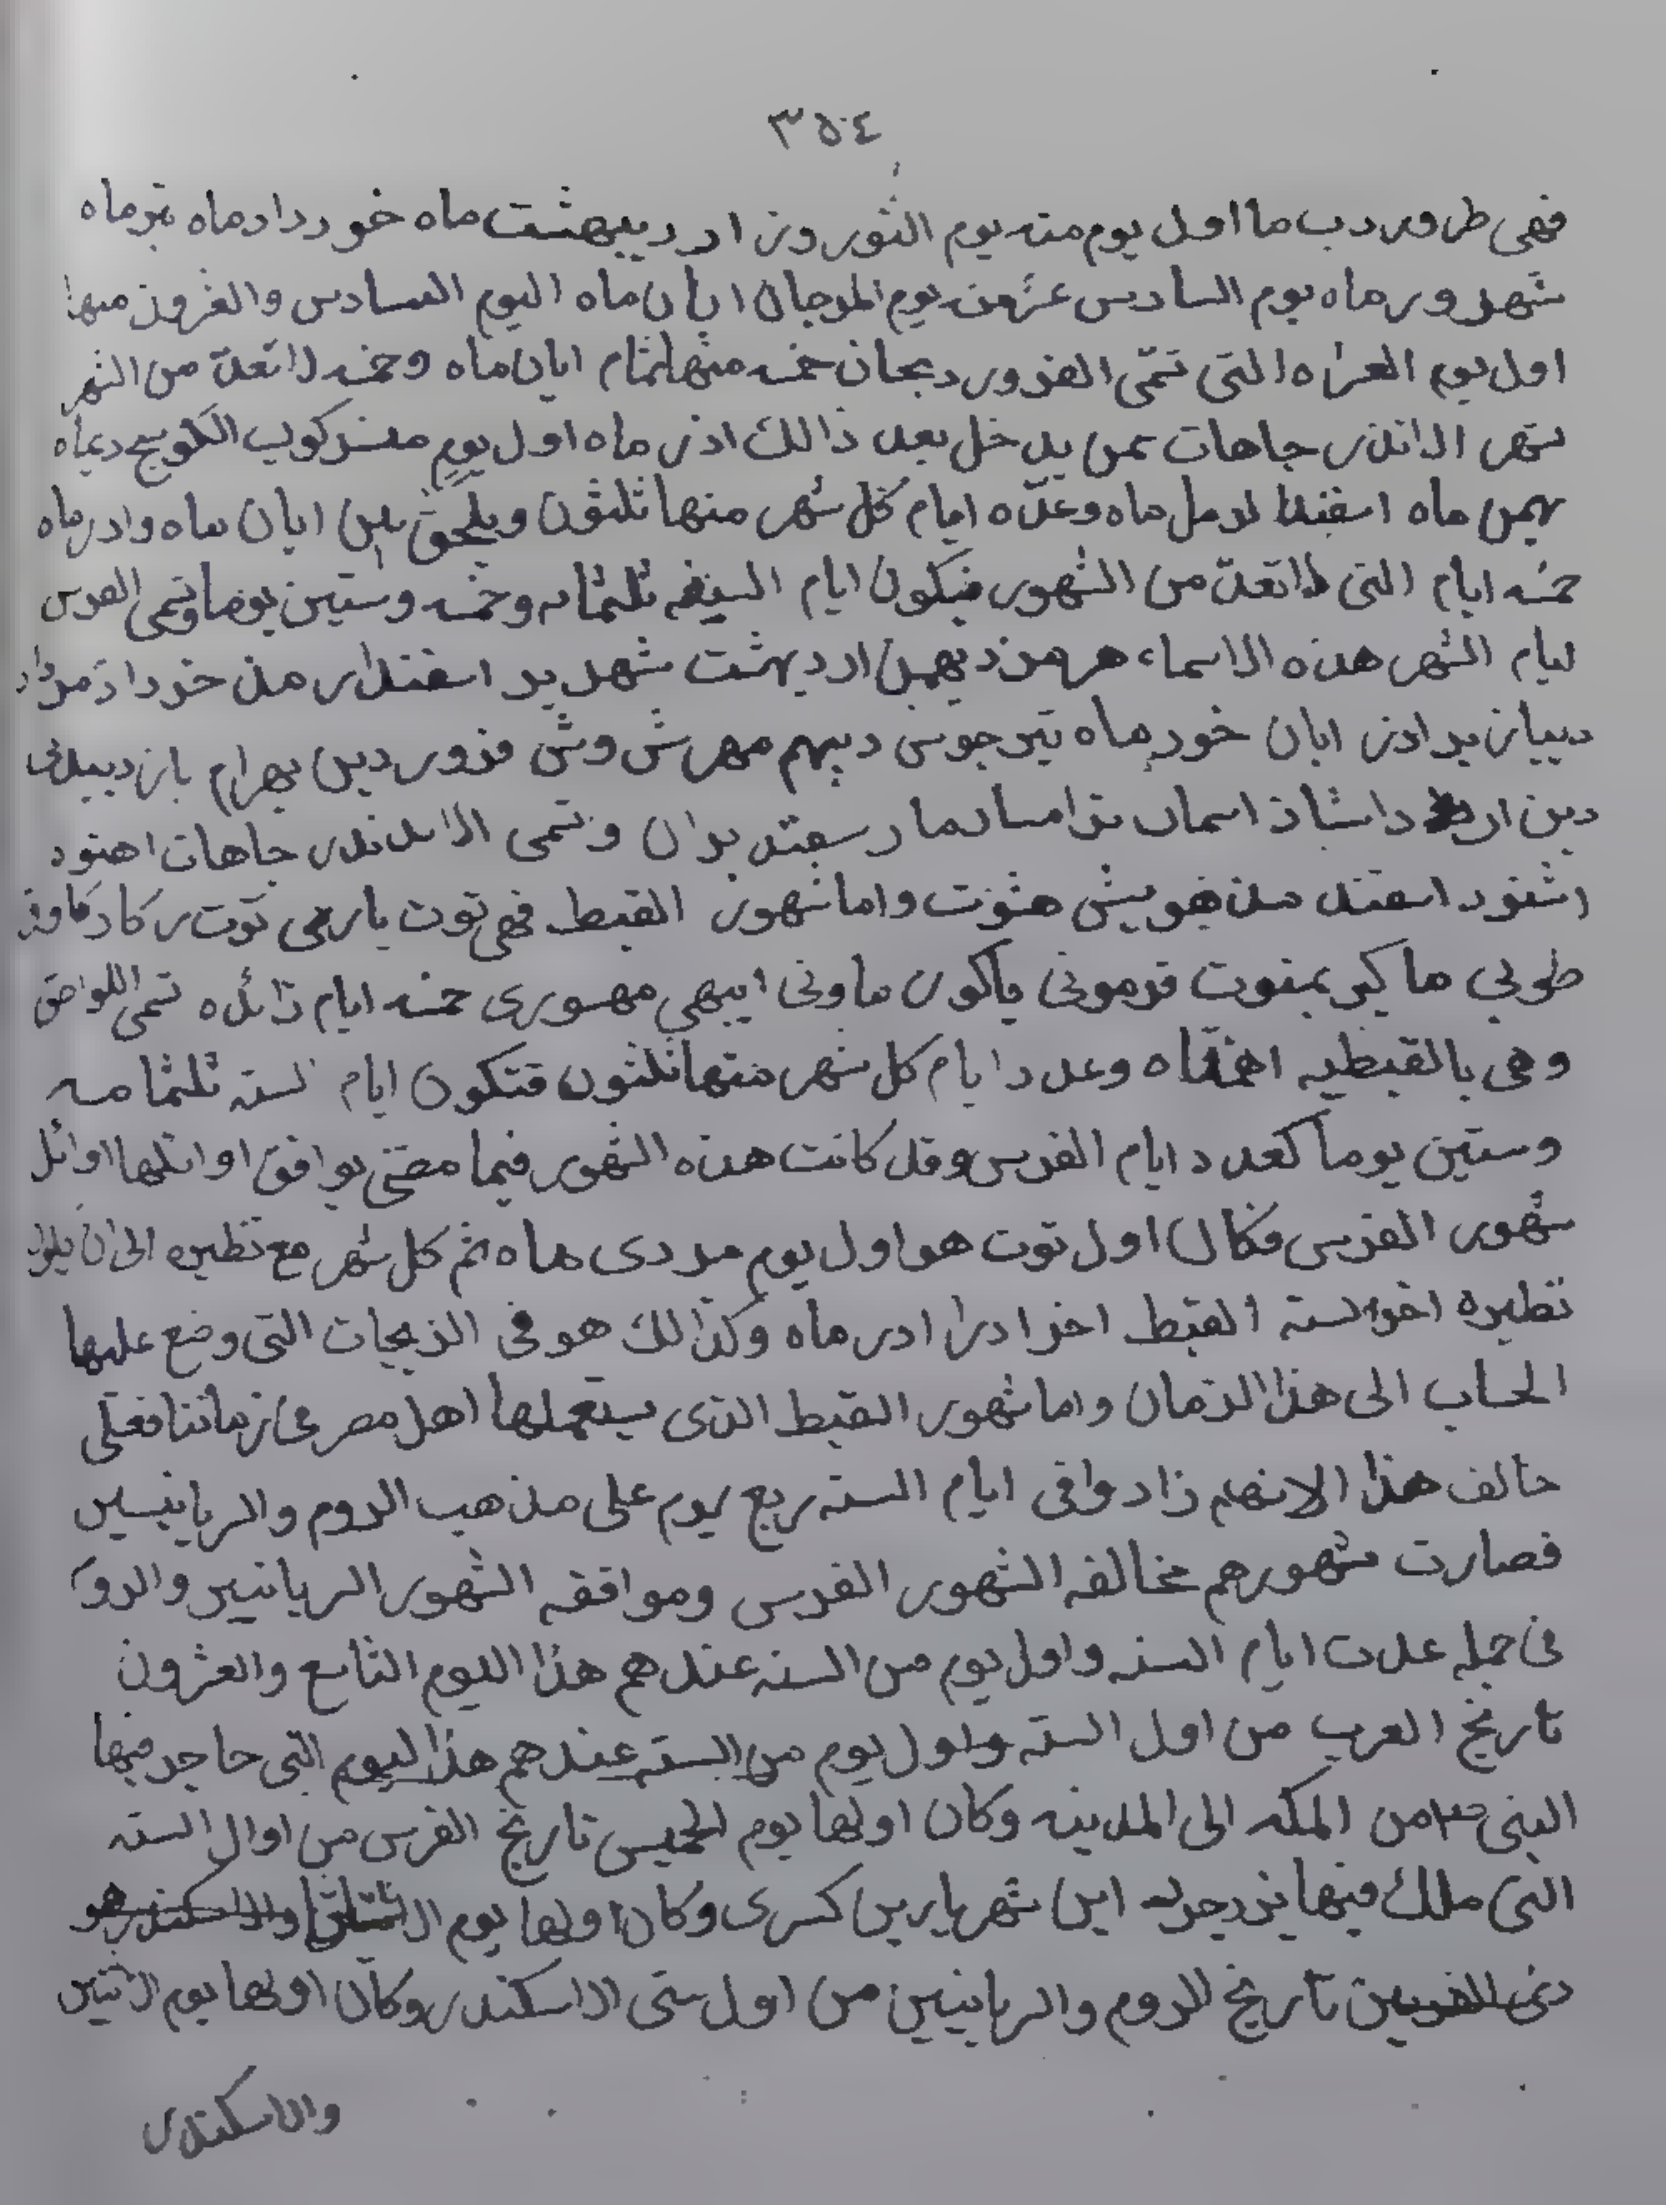 ٣٥٤
فهى طروردب ما اول يوم منه يوم النوروز ارديبهشت ماه خوردادماه تيرماه
شهرورماه يوم السادس عشر منه يوم المرجان ابان ماه اليوم السادس والعشرون منها
اول يوم العشره التى تسمّى الفروردجان خمسه منها تمام ابان ماه وخمسه لا تعدّ من الشهر
شهر الاندر جاهات بمن يدخل بعد ذالك اذر ماه اول يوم منه ركوب الكوسج ديماه
بهمن ماه اسفندارمل ماه وعدّه ايام كل شهر منها ثلثون ويلحق بين ابان ماه وادرماه
خمسه ايام التى لا تعدّ من الشهور فيكون ايام السنه ثلثمائه وخمسه وستين يوما وتسمى الفرس
ايام الشهر هذه الاسماء هرمزد بهمن ارديبهشت شهرير اسفندار مذ خرداد مرداد
ديباز بر اذر ابان خور ماه تير جوش ديبهم مهر سش وش فروردين بهرام باز ديبدى
دين ارد داشاذ اسمان وتسمى الاندر جاهات اهنود
اشنود اسفند مذ هويش هشوت واما شهور القبط فهى توت يارهى توت ر كادكاوز
طوبى ماكير بمنوت فرمونى ياكور ماونى ابيهى مهسورى خمسه ايام زائده تسمى اللواحق
وهى بالقبطيه وعدد ايام كل شهر منها ثلثون فتكون ايام السنه ثلثمائه
وستين يوما كعدد ايام الفرس وقد كانت هذه الشهور فيما مضى يوافق اوائلها اوائل
شهور الفرس فكان اول توت هو اول يوم من دى ماه ثم كل شهر مع نظيره الى ان يكون
نظيره اخر السنه القبط اخر ادر ماه وكذالك هو فى الزيجات التى وضع عليها
الحساب الى هذا الزمان واما شهور القبط الذى يستعملها اهل مصر فى زماننا فعلى
خالف هذا الانهم زادوا فى ايام السنه ربع يوم على مذهب الروم والسريانيسين
فصارت شهورهم مخالفه الشهور الفرس وموافقه الشهور السريانيين والروم
فى جمله عدت ايام السنه واول يوم من السنه عندهم هذا اليوم التاسع والعشرون
تاريخ العرب من اول السنه واول يوم من السنه عندهم هذا اليوم التى هاجر فيها
النبى من المكه الى المدينه وكان اولها يوم الخميس تاريخ الفرس من اوال السنه
التى ملك فيها يزدجرد ابن شهريار بن كسرى وكان اولها يوم الثلثا والاسكندر هو
ذى القرنين تاريخ الروم والسريانيين من اول سنى الاسكندر وكان اولها يوم الاثنين
والاسكندر